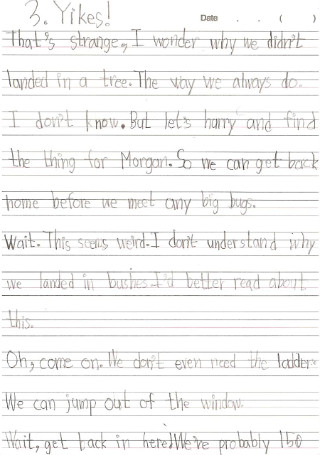 3. Yikes!
Date . . ( )
That's strange, I wonder why we didn't
landed in a tree. The way we always do.
I don't know. But let's harry and find
the thing for Morgan. So we can get back
home before we meet any big bugs.
Wait. This seems weird. I don't understand why
we landed in bushes. I'd better read about
this.
Oh, come on. We don't even need the ladder.
We can jump out of the window.
Wait, get back in here! We've probably 150